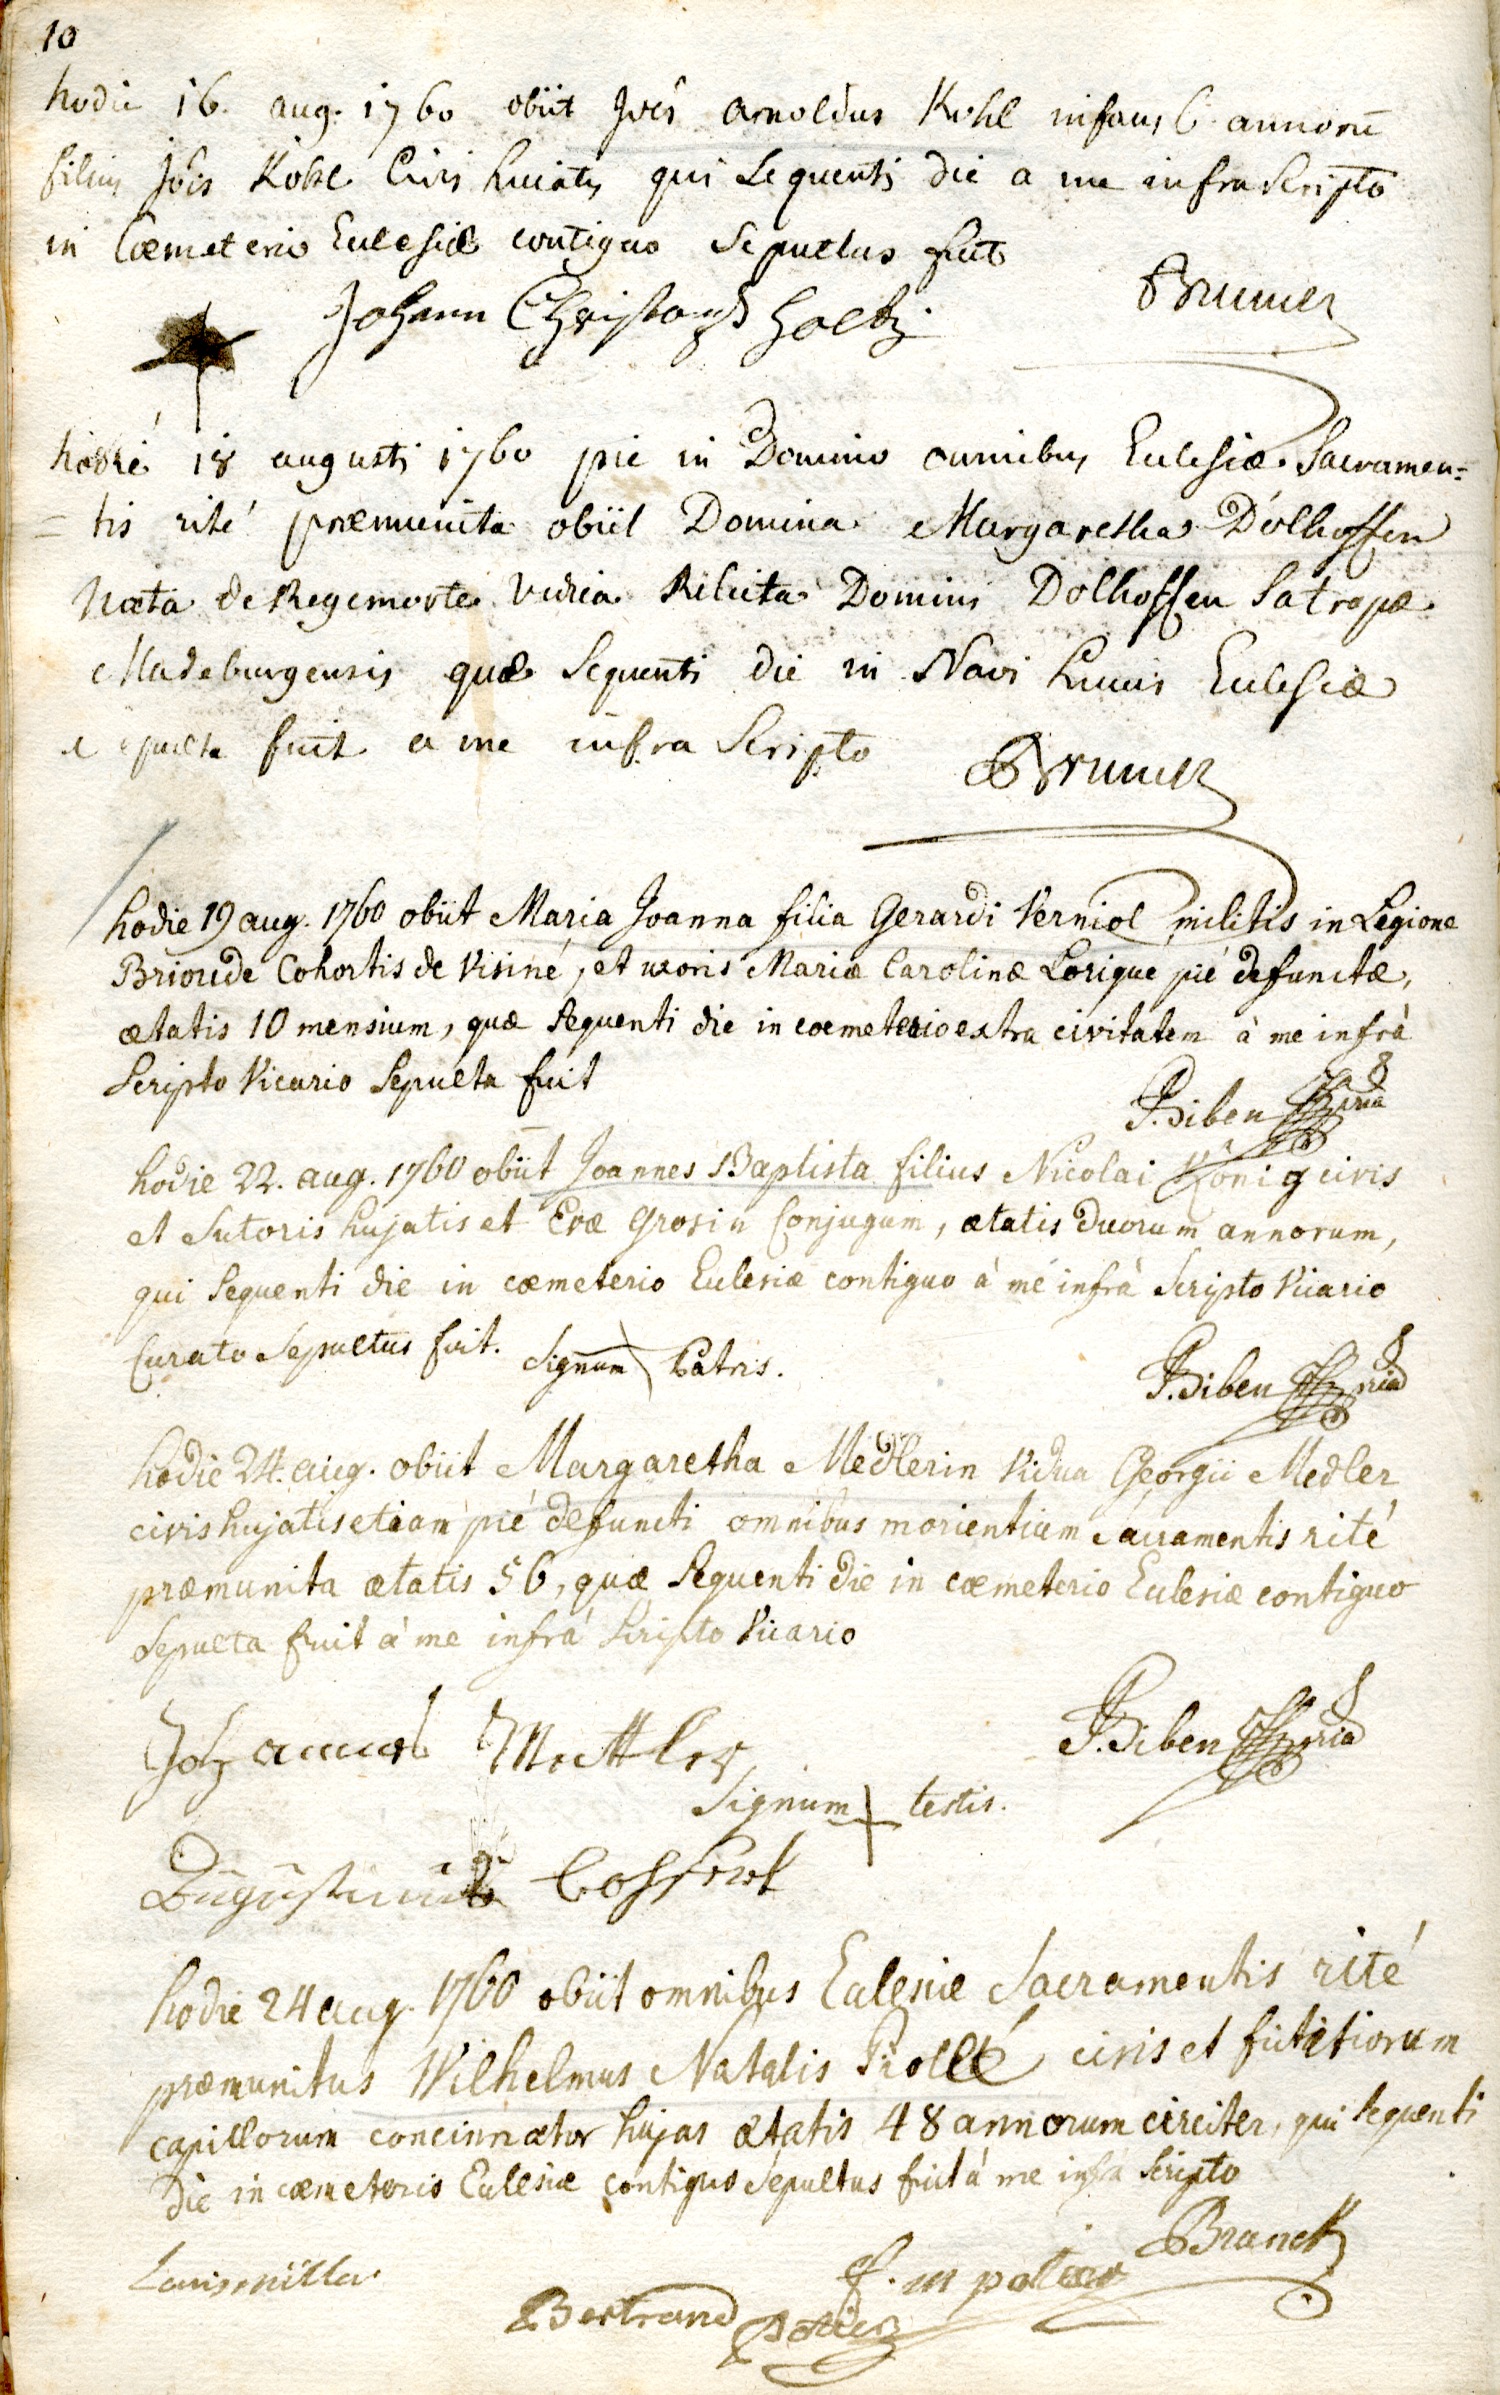 10
hodie 16. aug. 1760 obiit Joës Arnoldus Kohl infans 6 annorū
filius Jöis Kohl Civis huiatis qui sequenti die a me infra scripto
in Cœmeterio Ecclesiæ contiguo sepultus fuit
Johann Christoph
Brunner
hodié 18 augusti 1760 pie in Domino omnibus Ecclesiæ Sacramen=
= tis rité præmunita obiit Domina Margaretha Dolhoffen
Nata de Regemorte vidua Relicta Domini Dolhoffen Satrapæ
Madeburgensis quæ sequenti die in Navi huius Ecclesiæ
sepulta fuit a me infra scripto
Brunner
hodie 19 aug. 1760 obiit Maria Joanna filia Gerardi Verniol militis in Legione
Brioude Cohortis de Visiné, et uxoris Mariæ Carolinæ Lorique pié defunctæ,
ætatis 10 mensium, quæ sequenti die in cœmeterio extra civitatem à me infrà
Scripto Vicario Sepulta fuit
P. Biben
hodie 22. aug. 1760 obiit Joannes Baptista filius Nicolai König civis
et Sutoris hujatis et Evæ Grosin Conjugum, ætatis duorum annorum,
qui sequenti die in cœmeterio Ecclesiæ contiguo à me infrà Scripto Vicario
Curato Sepultus fuit. Signum Patris.
P. Biben
hodie 24. aug. obiit Margaretha Medlerin Vidua Georgii Medler
civis hujatis etiam pié defuncti omnibus morientium Sacramentis rité
præmunita ætatis 56, quæ sequenti die in cœmeterio Ecclesiæ contiguo
Sepulta fuit à me infrà Scripto Vicario
P. Biben
Johannes Mettler
Signum + testis.
Augustinus
hodie 24 aug. 1760 obiit omnibus Ecclesiæ Sacramentis rité
præmunitus Wilhelmus Natalis Piollé civis et fictitiorum
capillorum concinnator hujas ætatis 48 annorum circiter, qui sequenti
die in cœmeterio Ecclesiæ contiguo sepultus fuit à me infrà Scripto
Branck
Louis miller
f. m potier
Bertrand
potier